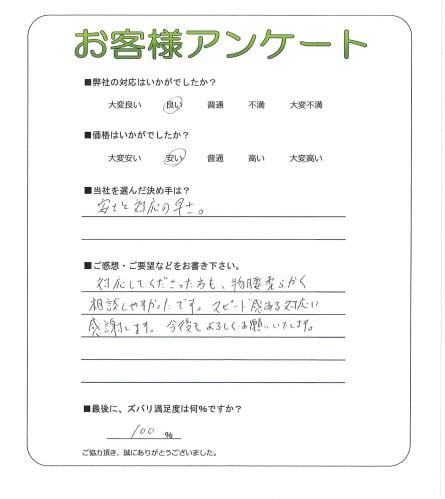 お客様アンケート
■弊社の対応はいかがでしたか？
大変良い 良い 普通 不満 大変不満
■価格はいかがでしたか？
大変安い 安い 普通 高い 大変高い
■当社を選んだ決め手は？
安さと対応の早さ。
■ご感想・ご要望などをお書き下さい。
対応してくださった方も、物腰柔らかく
相談しやすかったです。スピード感ある対応に
感謝します。今後もよろしくお願いいたします。
■最後に、ズバリ満足度は何%ですか？
100 %
ご協力頂き、誠にありがとうございました。